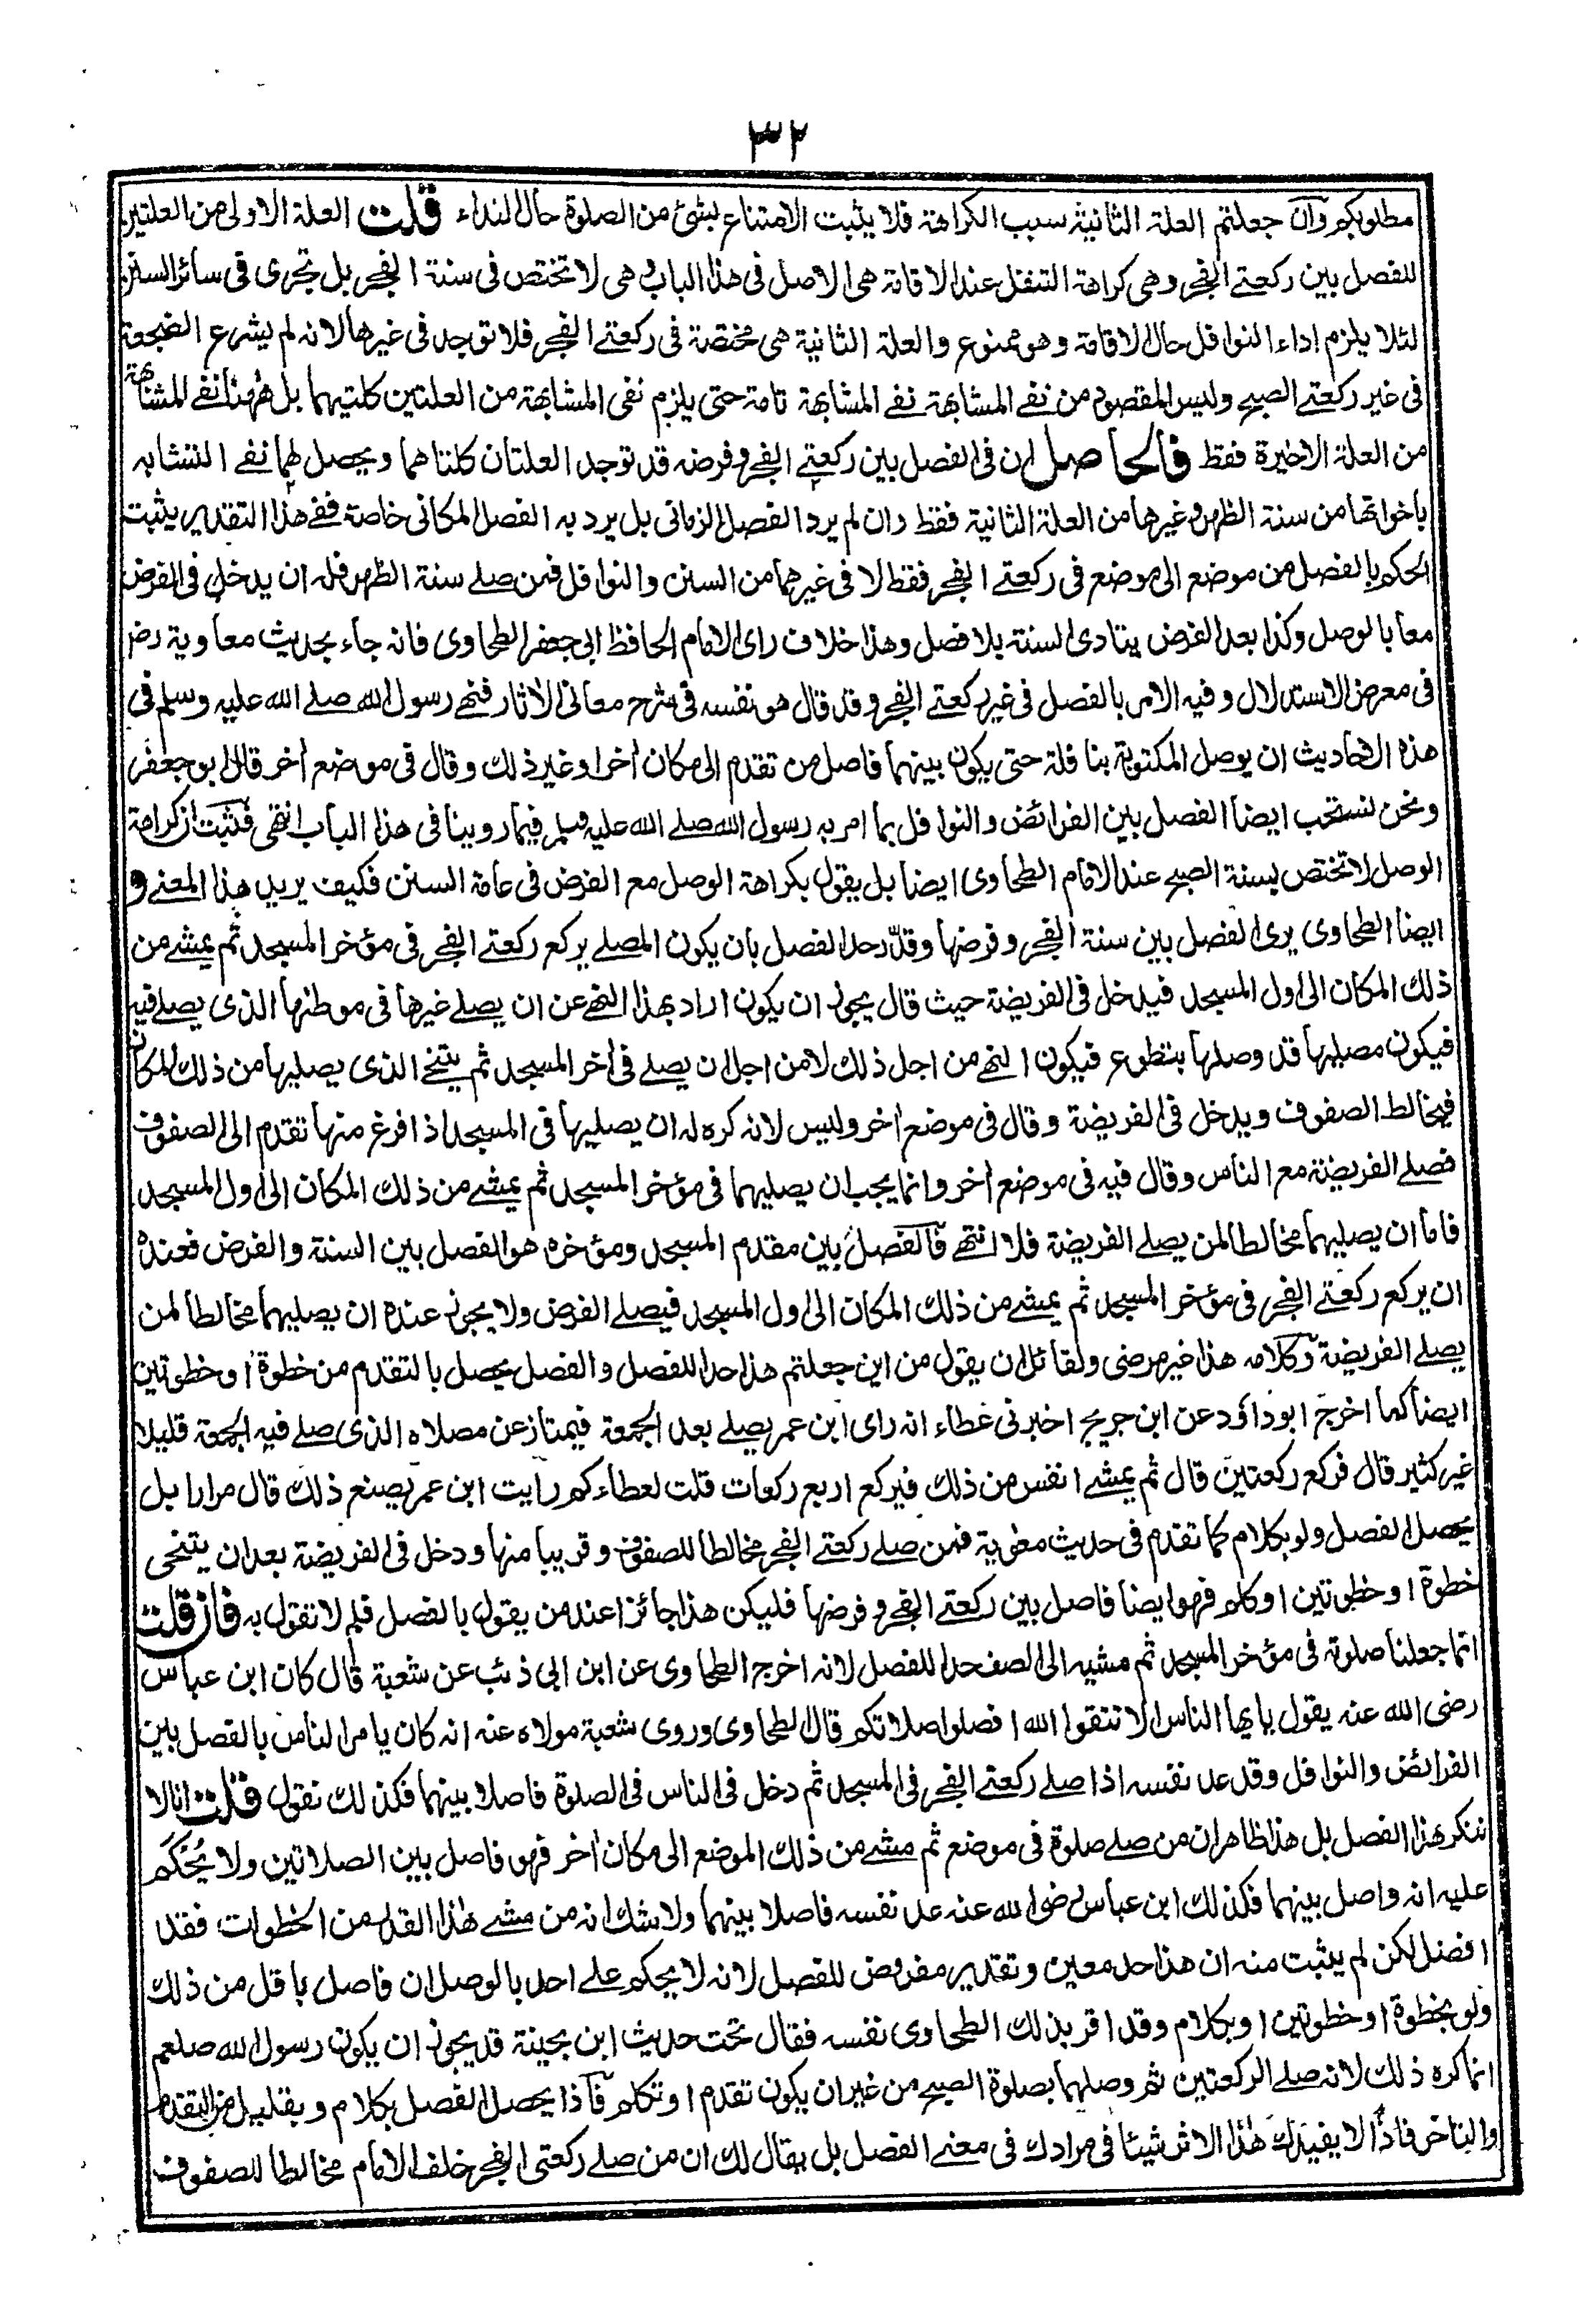 ٣٢
مطلوبكم وان جعلتم العلة الثانية سبب الكراهة فلا يثبت الامتناع بشئ من الصلوة حال النداء قلت العلة الاولى من العلتين
للفصل بين ركعتے الفجر وهى كراهة التنفل عند الاقامة هى الاصل فى هذا الباب وهى لا تختص فى سنة الفجر بل تجرى فى سائر السنن
لئلا يلزم اداء النوافل حال الاقامة وهو ممنوع والعلة الثانية هى مختصة فى ركعتے الفجر فلا توجد فى غيرها لانه لم يشرع الضجعة
فى غير ركعتے الصبح وليس المقصود من نفے المشابهة نفے المشابهة تامة حتى يلزم نفى المشابهة من العلتين كلتيهما بل ههنا نفے المشابهة
من العلة الاخيرة فقط فالحاصل ان فى الفصل بين ركعتے الفجر وفرضه قد توجد العلتان كلتاهما ويحصل لهما نفے التشابه
باخواتها من سنة الظهر وغيرها من العلة الثانية فقط وان لم يرد الفصل الزمانى بل يرد به الفصل المكانى خاصة ففے هذا التقدير يثبت
الحكم بالفصل من موضع الى موضع فى ركعتے الفجر فقط لا فى غيرهما من السنن والنوافل فمن صلے سنة الظهر فله ان يدخل فى الفرض
معا بالوصل وكذا بعد الفرض يتادى السنة بلا فصل وهذا خلاف راى الامام الحافظ ابى جعفر الطحاوى فانه جاء بحديث معاوية رضـ
فى معرض الاستدلال وفيه الامر بالفصل فى غير ركعتے الفجر وقد قال هو نفسه فى شرح معانى الاثار فنهے رسول الله صلے الله عليه وسلم فى
هذه الاحاديث ان يوصل المكتوبة بنافلة حتى يكون بينهما فاصل من تقدم الى مكان اخر او غير ذلك وقال فى موضع اخر قال ابو جعفر
ونحن نستحب ايضا الفصل بين الفرائض والنوافل بما امر به رسول الله صلے الله عليه وسلم فيما روينا فى هذا الباب انتهى فثبت ان كراهة
الوصل لا تختص بسنة الصبح عند الامام الطحاوى ايضا بل يقول بكراهة الوصل مع الفرض فى عامة السنن فكيف يريد هذا المعنے و
ايضا الطحاوى يرى الفصل بين سنة الفجر وفرضها وقد رحد الفصل بان يكون المصلے يركع ركعتے الفجر فى مؤخر المسجد ثم يمشے من
ذلك المكان الى اول المسجد فيدخل فى الفريضة حيث قال يجوز ان يكون اراد بهذا النهے عن ان يصلے غيرها فى موطنها الذى يصلے فيه
فيكون مصليها قد وصلها بتطوع فيكون النهے من اجل ذلك لا من اجل ان يصلے فى اخر المسجد ثم يتنحے الذى يصليها من ذلك المكان
فيخالط الصفوف ويدخل فى الفريضة وقال فى موضع اخر وليس لانه كره له ان يصليها فى المسجد اذا فرغ منها تقدم الى الصفوف
فصلے الفريضة مع الناس وقال فيه فى موضع اخر وانما يجب ان يصليهما فى مؤخر المسجد ثم يمشے من ذلك المكان الى اول المسجد
فاما ان يصليهما مخالطا لمن يصلے الفريضة فلا انتهے فالفصل بين مقدم المسجد ومؤخره هو الفصل بين السنة والفرض فعنده
ان يركع ركعتے الفجر فى مؤخر المسجد ثم يمشے من ذلك المكان الى اول المسجد فيصلے الفرض ولا يجوز عنده ان يصليهما مخالطا لمن
يصلے الفريضة وكلامه هذا غير مرضى ولقائل ان يقول من اين جعلتم هذا حدا للفصل والفصل يحصل بالتقدم من خطوة او خطوتين
ايضا كما اخرج ابو داؤد عن ابن جريج اخبرنى عطاء انه راى ابن عمر يصلے بعد الجمعة فيمتاز عن مصلاه الذى صلے فيه الجمعة قليلا
غير كثير قال فركع ركعتين قال ثم يمشے انفس من ذلك فيركع اربع ركعات قلت لعطاء كم رايت ابن عمر يصنع ذلك قال مرارا بل
يحصل الفصل ولو بكلام كما تقدم فى حديث معوية فمن صلے ركعتے الفجر مخالطا للصفوف وقريبا منها ودخل فى الفريضة بعد ان يتنحى
خطوة او خطوتين او كلم فهو ايضا فاصل بين ركعتے الفجر وفرضها فليكن هذا جائزا عند من يقول بالفصل فلم لا تقول به فان قلت
انما جعلنا صلوته فى مؤخر المسجد ثم مشيه الى الصف حدا للفصل لانه اخرج الطحاوى عن ابن ابى ذئب عن شعبة قال كان ابن عباس
رضى الله عنه يقول يايها الناس الا تتقوا الله افصلوا صلاتكم قال الطحاوى وروى شعبة مولاه عنه انه كان يامر الناس بالفصل بين
الفرائض والنوافل وقد عد نفسه اذا صلے ركعتے الفجر فى المسجد ثم دخل فى الناس فى الصلوة فاصلا بينهما فكذلك نقول قلت انا لا
ننكر هذا الفصل بل هذا ظاهر ان من صلے صلوة فى موضع ثم مشے من ذلك الموضع الى مكان اخر فهو فاصل بين الصلاتين ولا يُحكَم
عليه انه واصل بينهما فكذلك ابن عباس رضى الله عنه عد نفسه فاصلا بينهما ولا شك انه من مشے هذا القدر من الخطوات فقد
افصل لكن لم يثبت منه ان هذا حد معين وتقدير مفروض للفصل لانه لا يحكم علے احد بالوصل ان فاصل باقل من ذلك
ولو بخطوة او خطوتين او بكلام وقد اقر بذلك الطحاوى نفسه فقال تحت حديث ابن بحينة قد يجوز ان يكون رسول الله صلعم
انما كره ذلك لانه صلے الركعتين ثم وصلهما بصلوة الصبح من غير ان يكون تقدم او تكلم فاذا يحصل الفصل بكلام وبقليل من التقدم
والتاخر فاذًا لا يفيدك هذا الاثر شيئا فى مرادك فى معنے الفصل بل يقال لك ان من صلے ركعتى الفجر خلف الامام مخالطا للصفوف